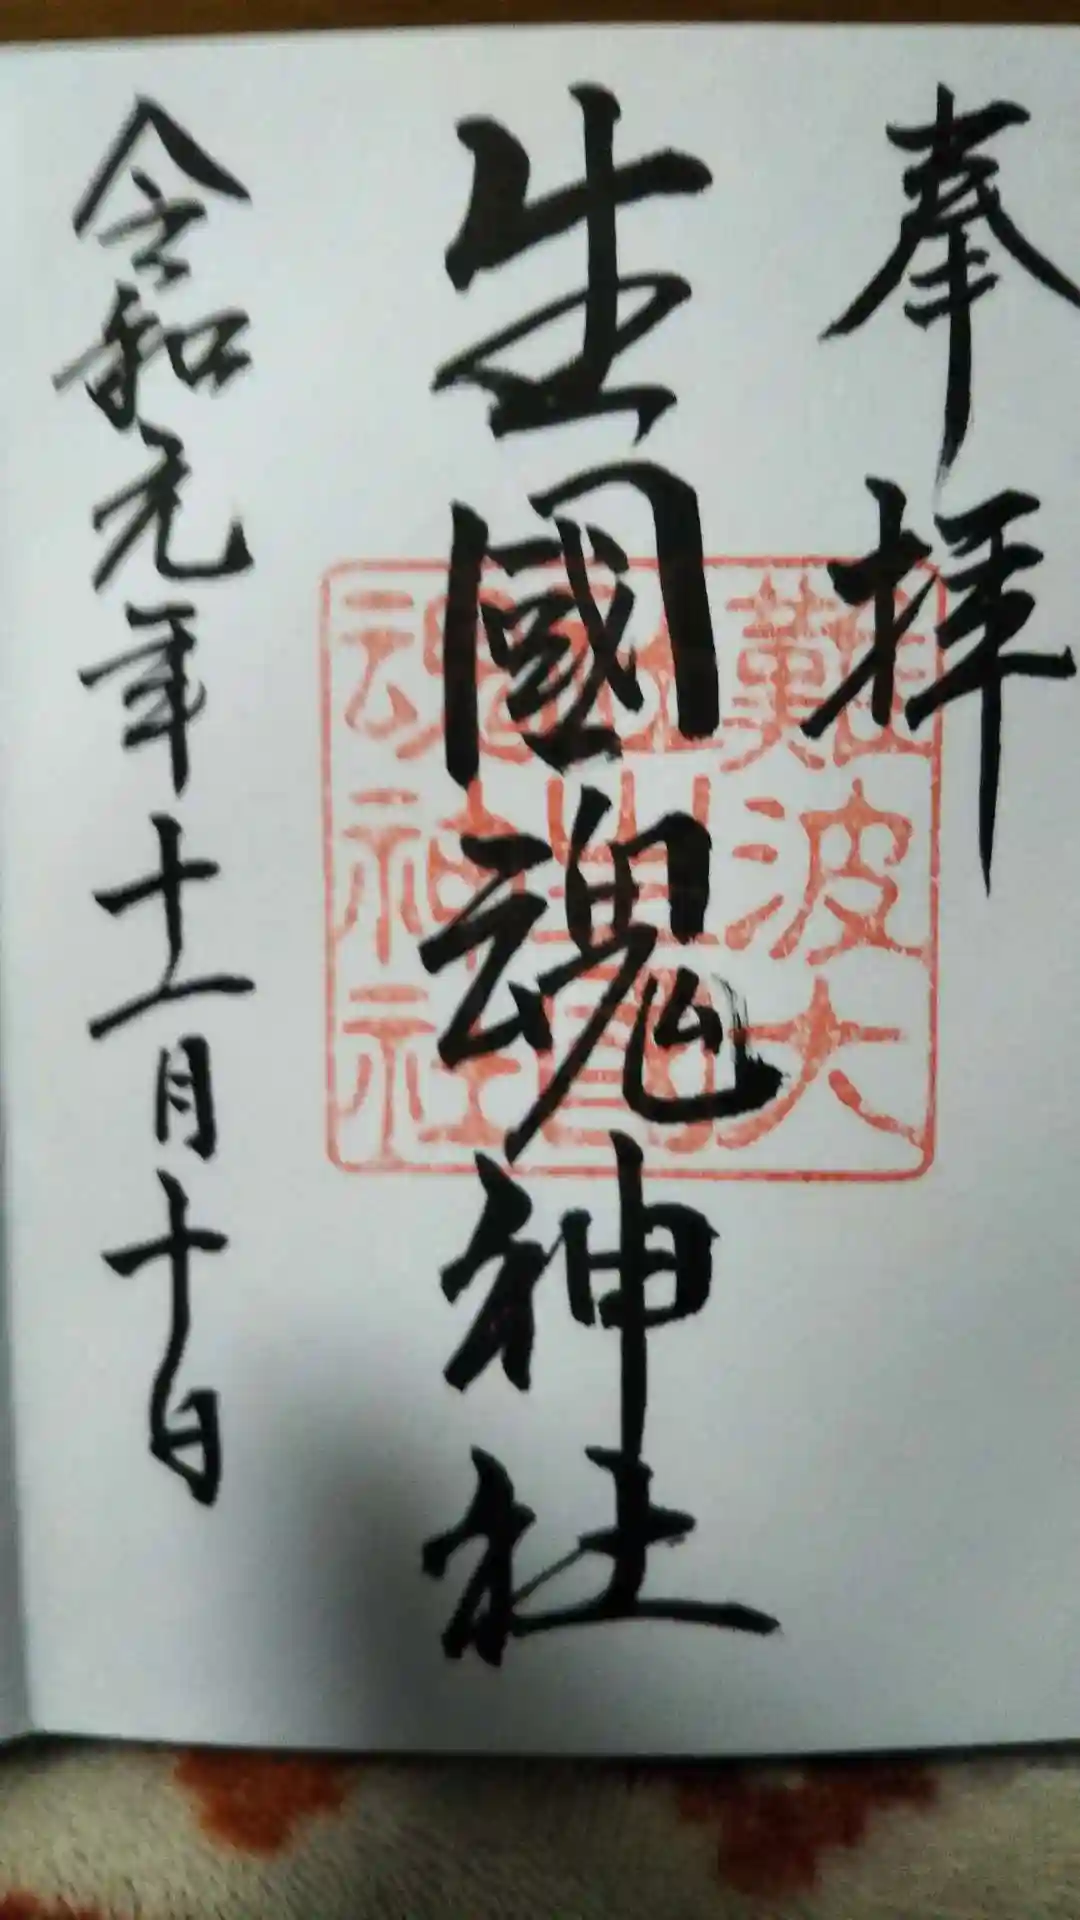 奉拝
生國魂神社
難波大
生國魂
神社
令和元年十一月十日